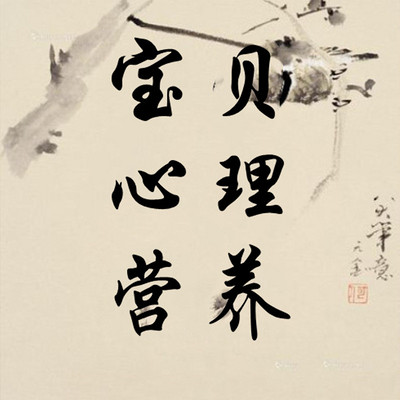 宝贝
心理
营养
八大筆意